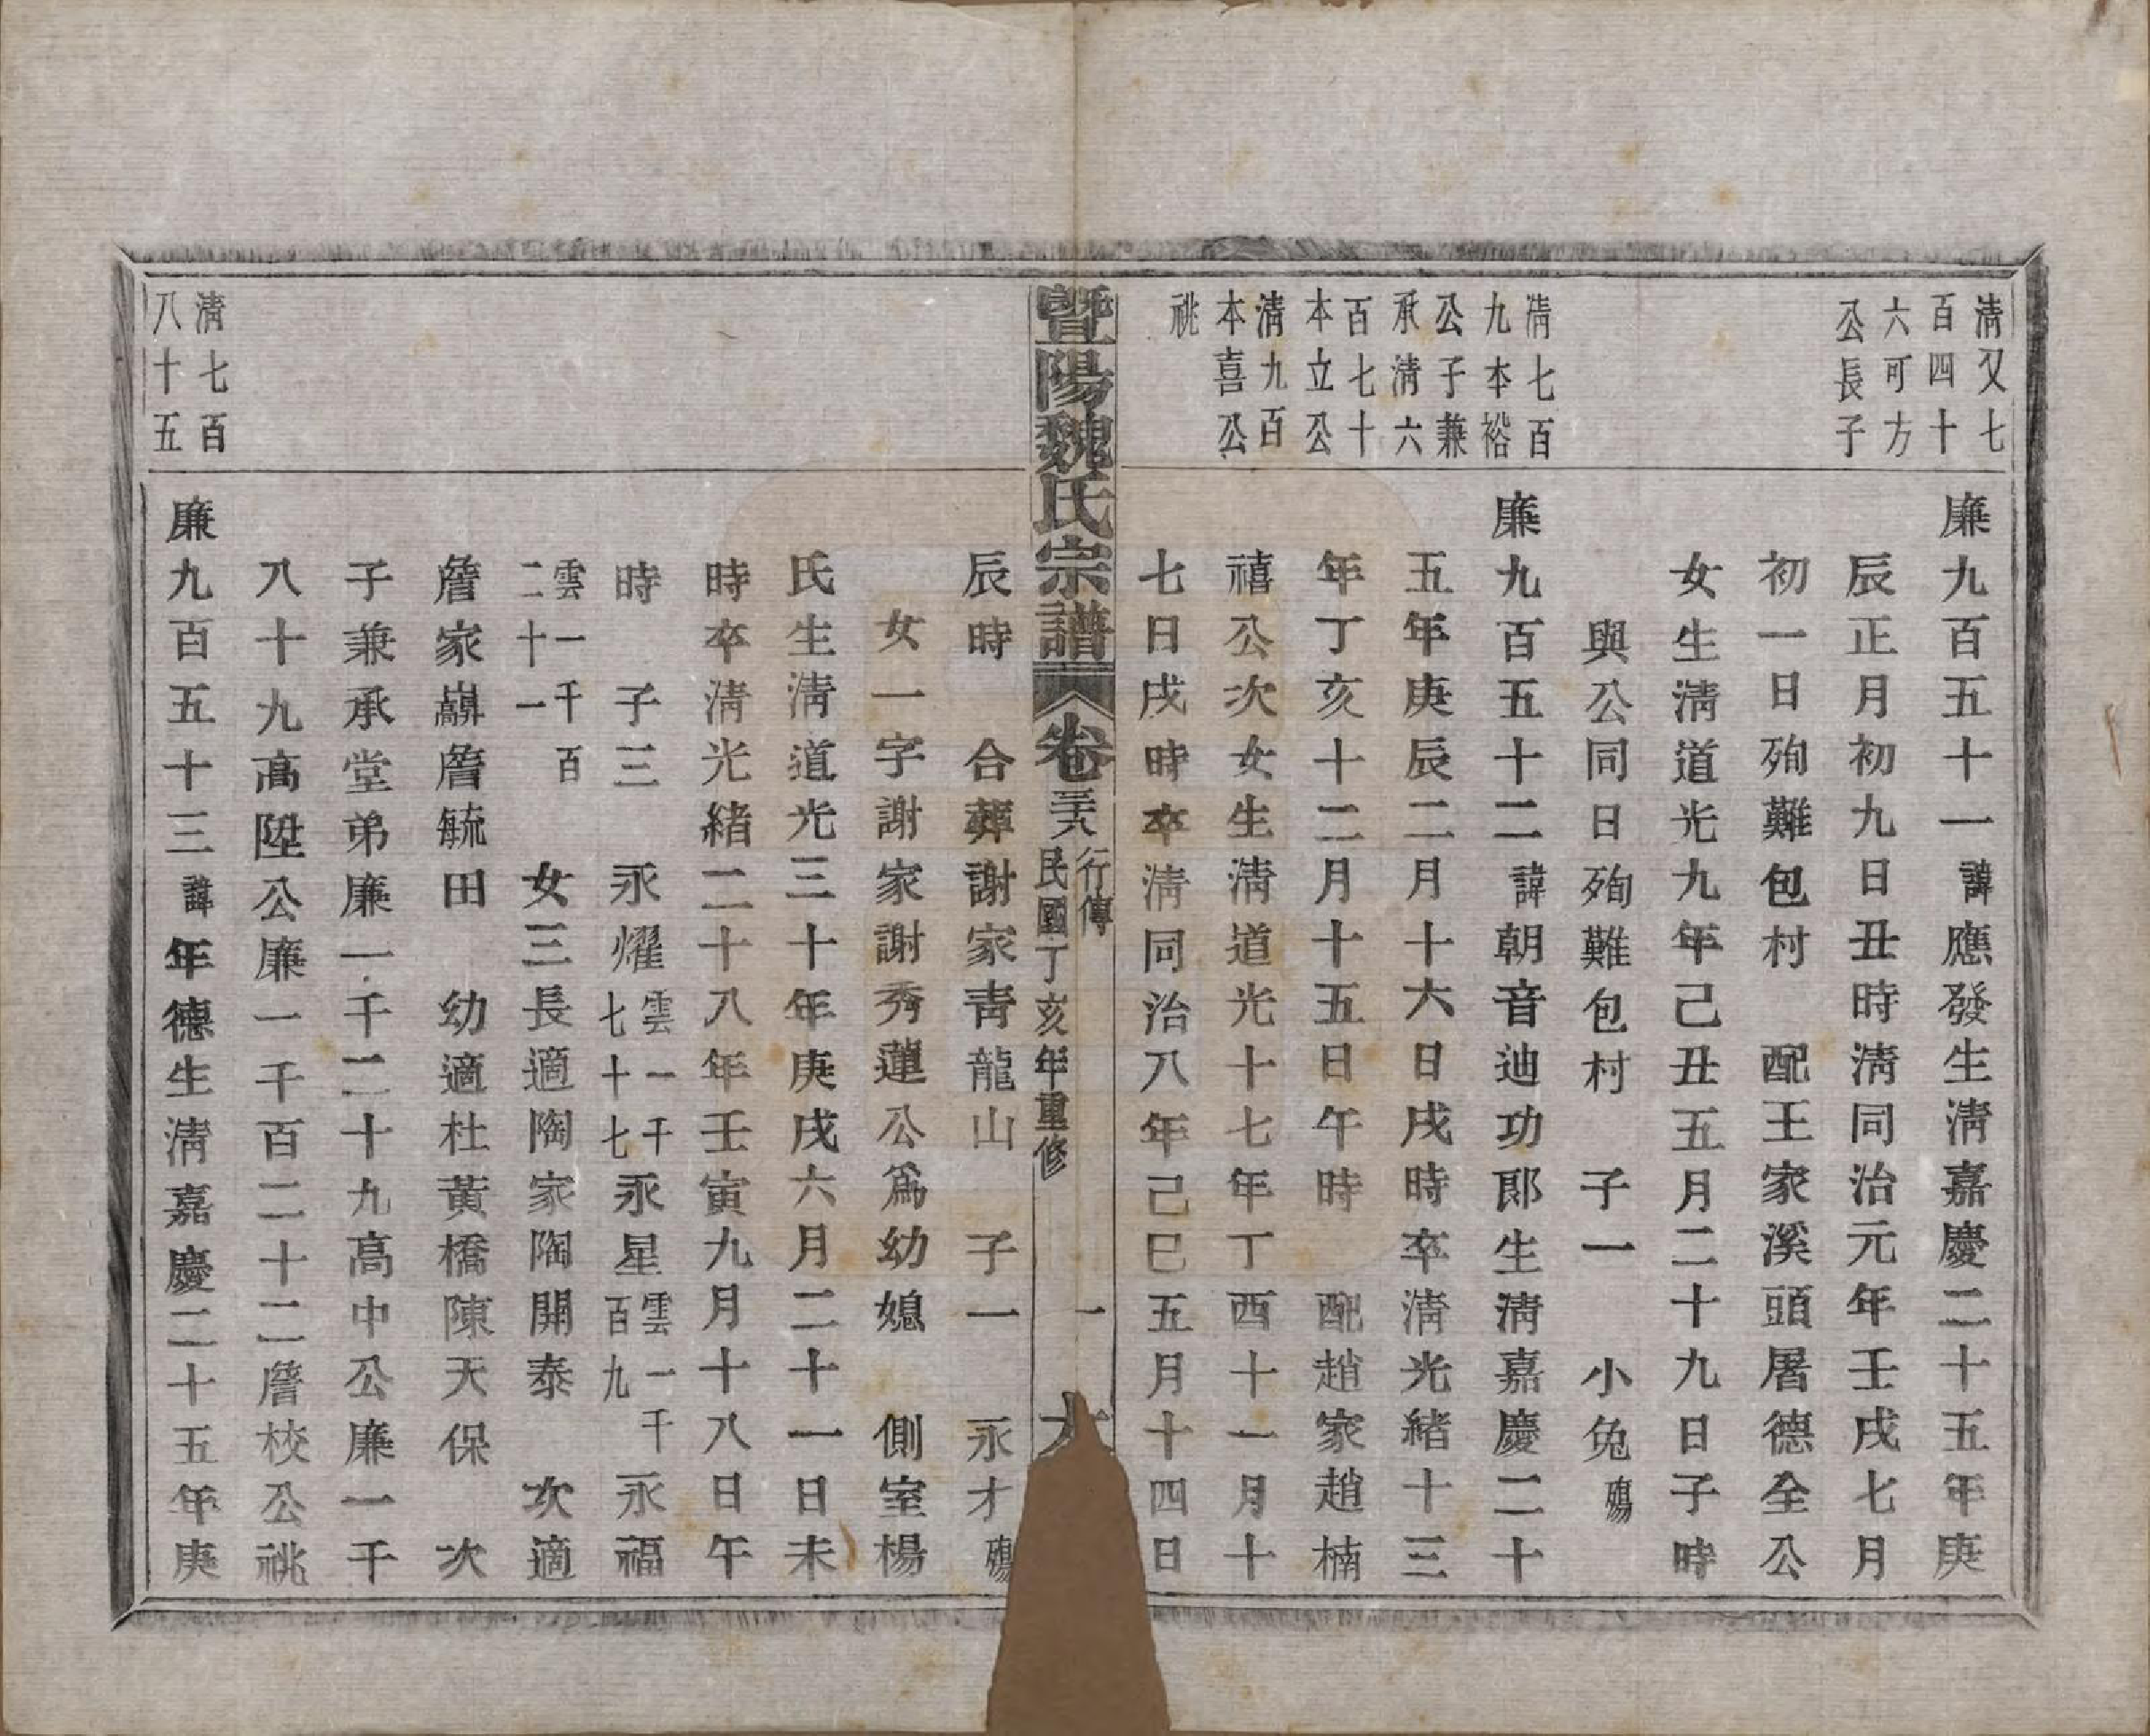 清又七
百四十
六可方
公長子
廉九百五十一諱應發生淸嘉慶二十五年庚
辰正月初九日丑時淸同治元年壬戌七月
初一日殉難包村　配王家溪頭屠德全公
女生淸道光九年己丑五月二十九日子時
與公同日殉難包村　子一　小兔殤
清七百
九本裕
公子兼
承清六
百七十
本立公
清九百
本喜公
祧
廉九百五十二諱朝音迪功郎生淸嘉慶二十
五年庚辰二月十六日戌時卒淸光緒十三
年丁亥十二月十五日午時　配趙家趙楠
禧公次女生淸道光十七年丁酉十一月十
七日戌時卒淸同治八年己巳五月十四日
暨陽魏氏宗譜
卷三六
行傳
民國丁亥年重修
一
辰時　合葬謝家靑龍山　子一　永才殤
女一字謝家謝秀蓮公爲幼媳　側室楊
氏生淸道光三十年庚戌六月二十一日未
時卒淸光緒二十八年壬寅九月十八日午
時　子三　永燿雲一千七十七永星雲一千百九永福
雲一千百二十一　女三長適陶家陶開泰　次適
詹家𡾋詹毓田　幼適杜黃橋陳天保　次
子兼承堂弟廉一千二十九高中公廉一千
八十九高陞公廉一千百二十二詹校公祧
清七百
八十五
廉九百五十三諱年德生淸嘉慶二十五年庚